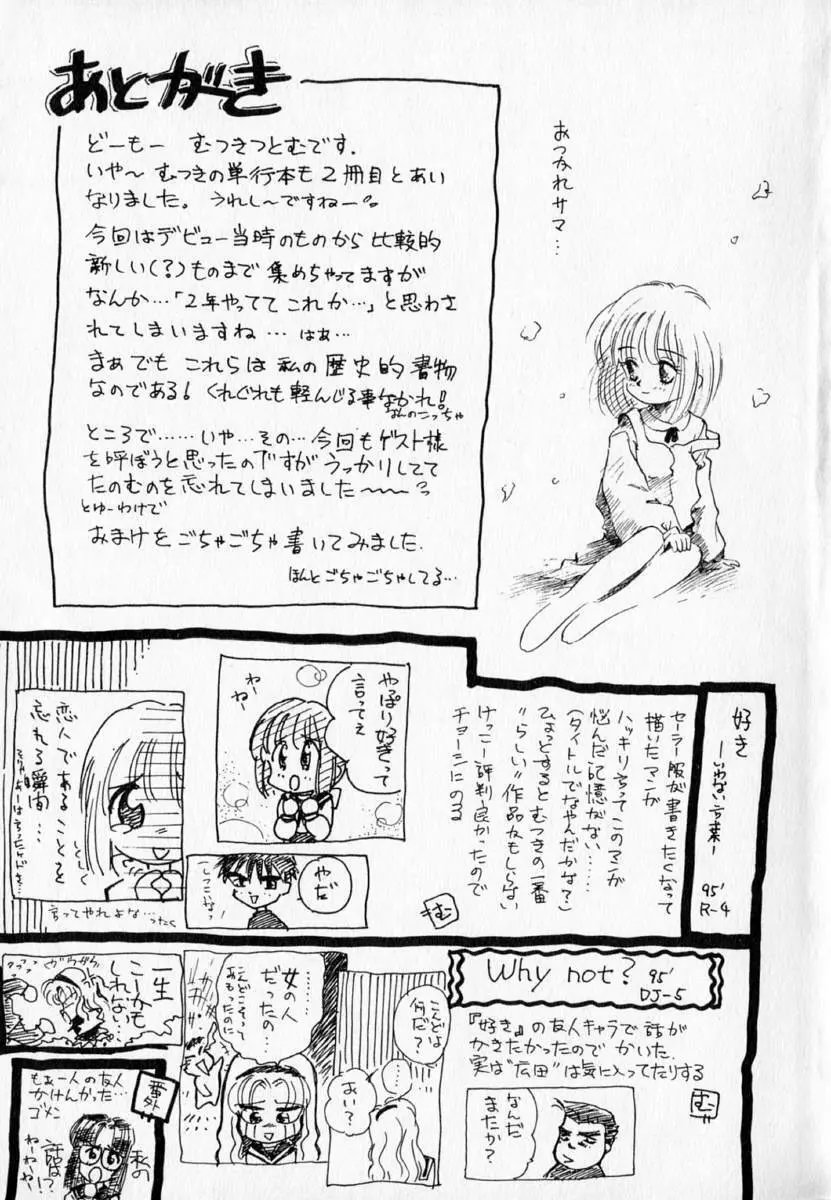 あとがき
どーもー むつきつとむです.
いや〜 むつきの単行本も2冊目とあい
なりました。うれし〜ですねー
今回はデビュー当時のものから比較的
新しい(?)ものまで集めちゃってますが
なんか…「2年やってて これか…」と思わさ
れてしまいますね… はぁ…
まぁでも これらは私の歴史的書物
なのである! くれぐれも軽んじる事なかれ!
なんのこっちゃ
ところで……いや…その…今回もゲスト様
を呼ぼうと思ったのですがうっかりしてて
たのむのを忘れてしまいました〜〜
とゆーわけで
おまけをごちゃごちゃ書いてみました.
ほんとごちゃごちゃしてる…
おつかれサマ…
好き
ーいけない言葉ー
95'
R-4
セーラー服が書きたくなって
描いたマンガ
ハッキリ言ってこのマンガ
悩んだ記憶がない……
(タイトルでなやんだかな?)
ひょっとするとむつきの一番
"らしい"作品かもしらない
けっこー評判良かったので
チョーシにのる
む
やっぱり好きって
言ってェ
わー
ねー
やだ
しつこいなっ
恋人であることを
忘れる瞬間…
しくしく
言ってやれよな…
ったく
Why not?
95'
DJ-5
『好き』の友人キャラで話が
かきたかったので かいた.
実は"広田"は気に入ってたりする
む
なんだ
またか?
こんどは
何だ?
あい?
……女の人
だったの…
一生
こーかも
しれない…
番外
もぉ一人の友人
かけんかった…
ゴメン
私の
話は!?
ねーねーや!